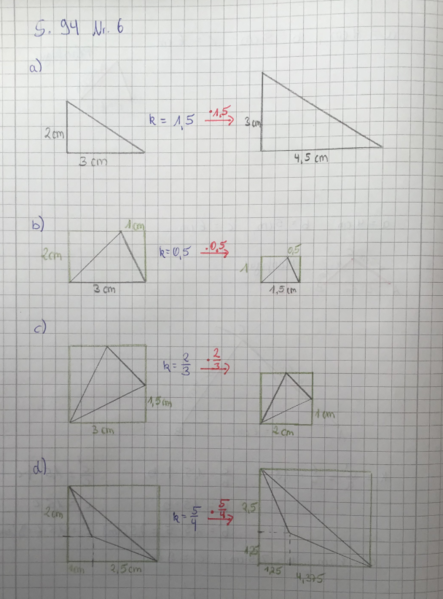 S. 94 Nr. 6
a)
2cm
3 cm
k = 1,5
·1,5
3cm
4,5 cm
b)
1cm
2cm
3 cm
k=0,5
·0,5
0,5
1
1,5cm
c)
1,5cm
3 cm
k= 2/3
· 2/3
1cm
2cm
d)
2cm
k= 5/4
· 5/4
2,5
1,25
1,25
4,375